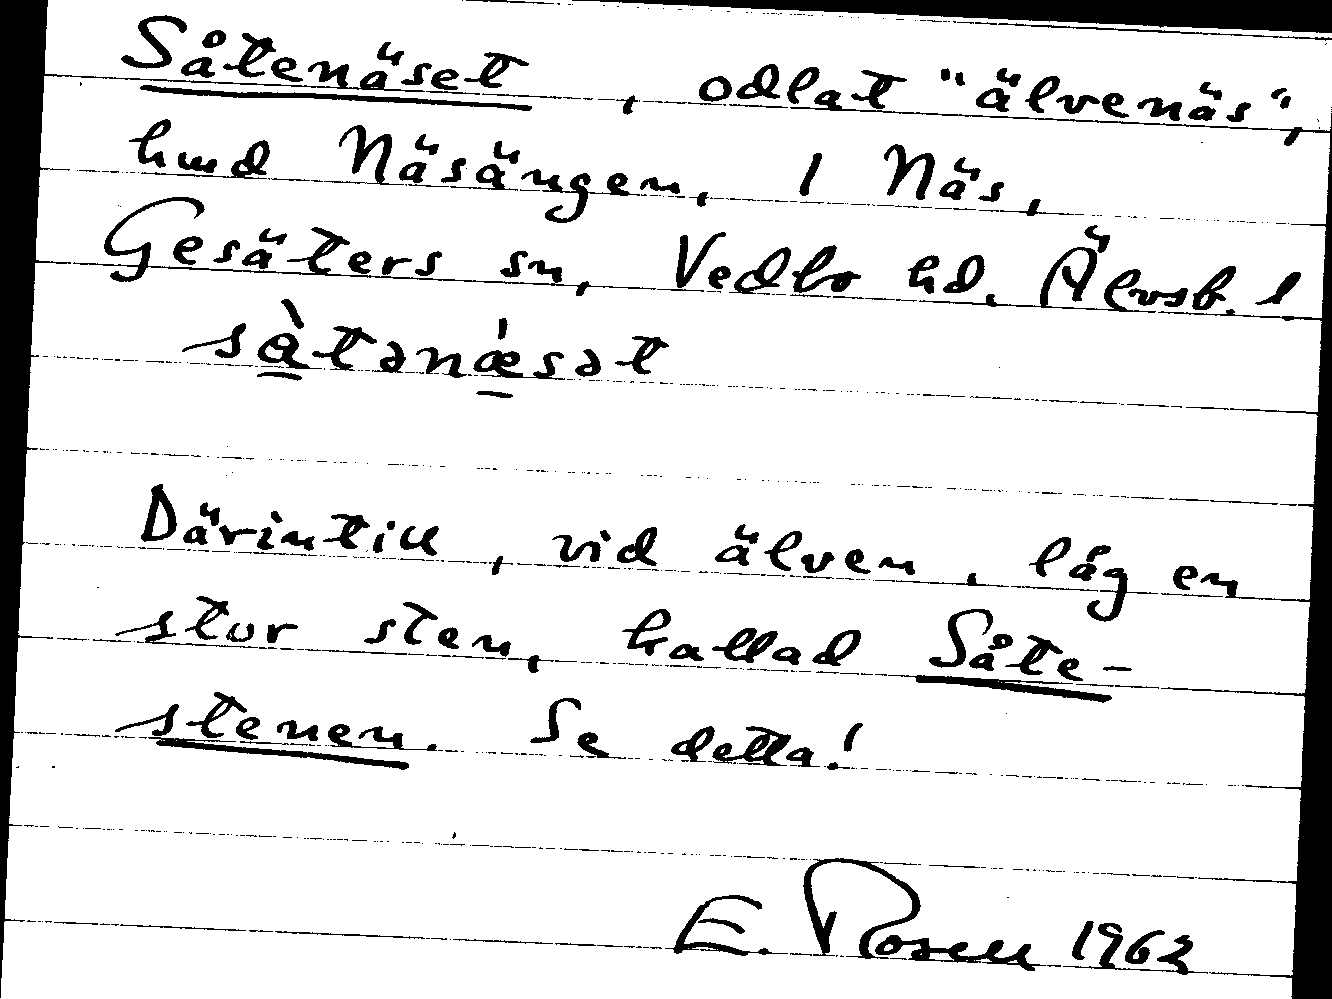 Såtenäset, odlat "älvenäs",
hmd Näsängen, 1 Näs,
Gesäters sn, Vedbo hd. Älvsb. l.
sàtənǽsət
Därintill, vid älven, låg en
stor sten, kallad Såte-
stenen. Se detta!
E. Rosell 1962